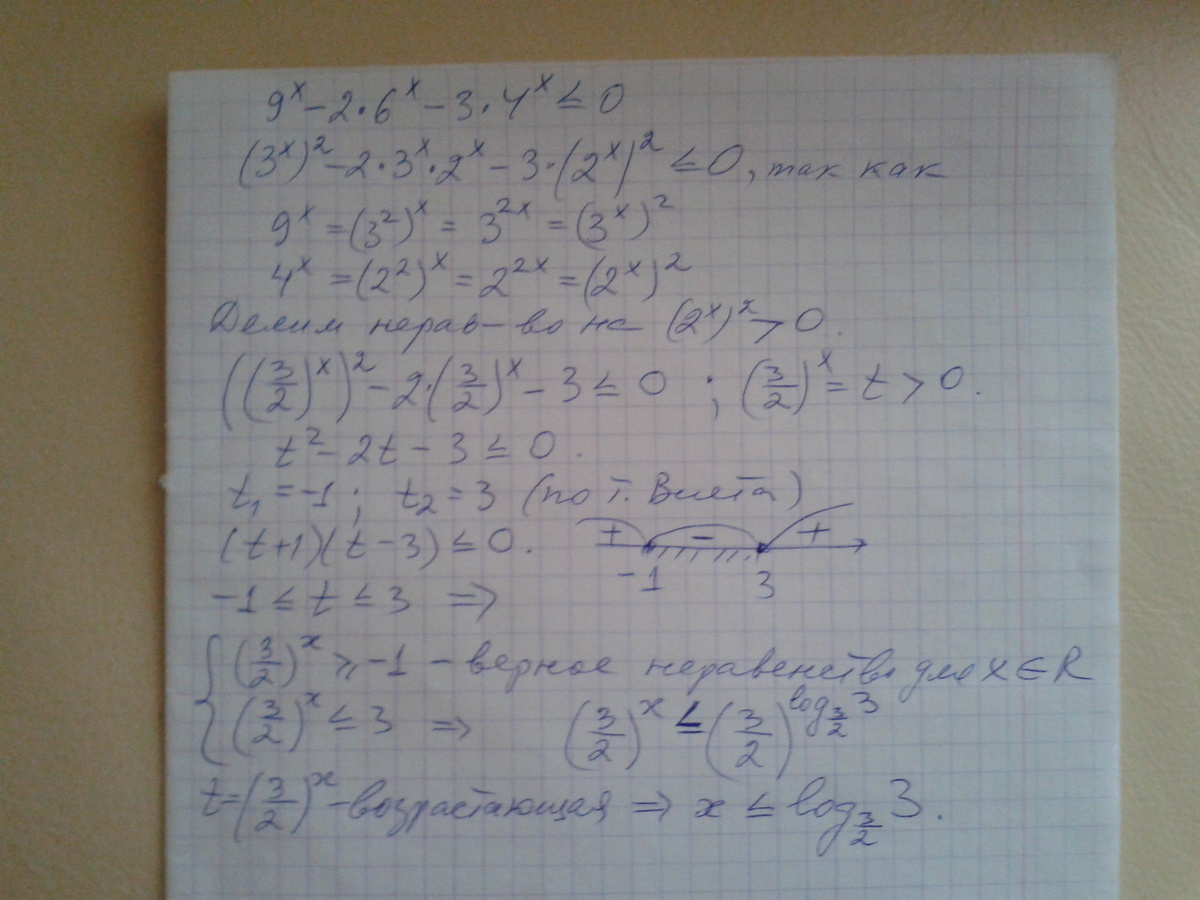 9^x − 2·6^x − 3·4^x ≤ 0
(3^x)^2 − 2·3^x·2^x − 3·(2^x)^2 ≤ 0, так как
9^x = (3^2)^x = 3^{2x} = (3^x)^2
4^x = (2^2)^x = 2^{2x} = (2^x)^2
Делим нерав-во на (2^x)^2 > 0.
((3/2)^x)^2 − 2·(3/2)^x − 3 ≤ 0 ; (3/2)^x = t > 0.
t^2 − 2t − 3 ≤ 0.
t_1 = −1; t_2 = 3 (по т. Виета)
(t+1)(t−3) ≤ 0. + − +
−1 3
−1 ≤ t ≤ 3 ⇒
{ (3/2)^x ≥ −1 – верное неравенство для x ∈ R
(3/2)^x ≤ 3 ⇒ (3/2)^x ≤ (3/2)^{log_{3/2} 3}
t = (3/2)^x – возрастающая ⇒ x ≤ log_{3/2} 3.